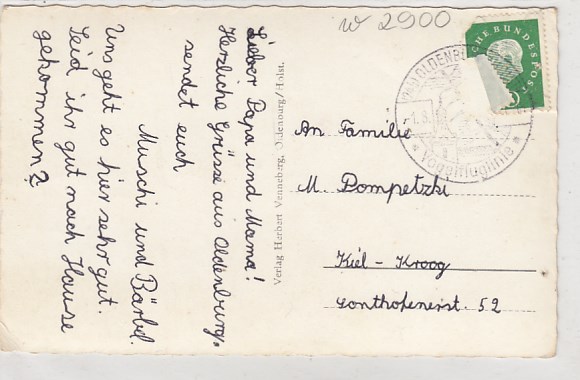 w 2900
Lieber Papa und Mama!
Herzliche Grüsse aus Oldenburg.
sendet euch
Muschi und Bärbel.
Uns geht es hier sehr gut.
Seid ihr gut nach Hause
gekommen?
Verlag Herbert Venneberg, Oldenburg/Holst.
CHE BUNDESPOST
OLDENB
Vogelfluglinie
An Familie
M. Pompetzki
Kiel - Kroog
52